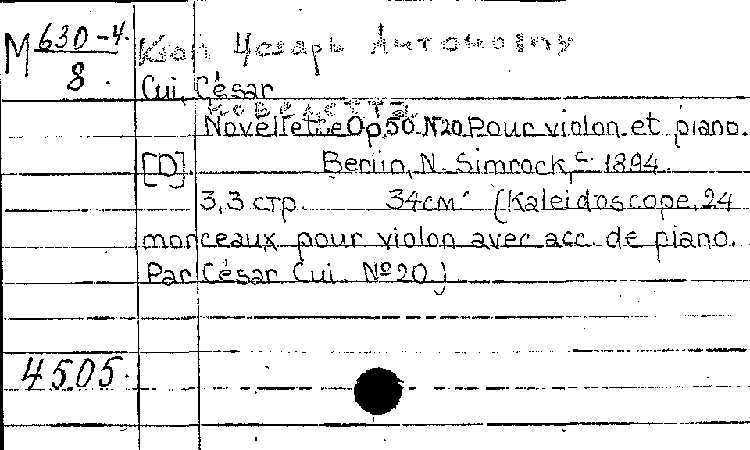 М 630-4. Кюи Цезарь Антонович
8.
Cui, César
Новелетта
Novellette Op.50. №20 Pour violon et piano.
[D]. Berlin, N. Simrock, c. 1894.
3,3 стр. 34см. (Kaleidoscope, 24
morceaux pour violon avec acc. de piano.
Par César Cui. №20)
4505.